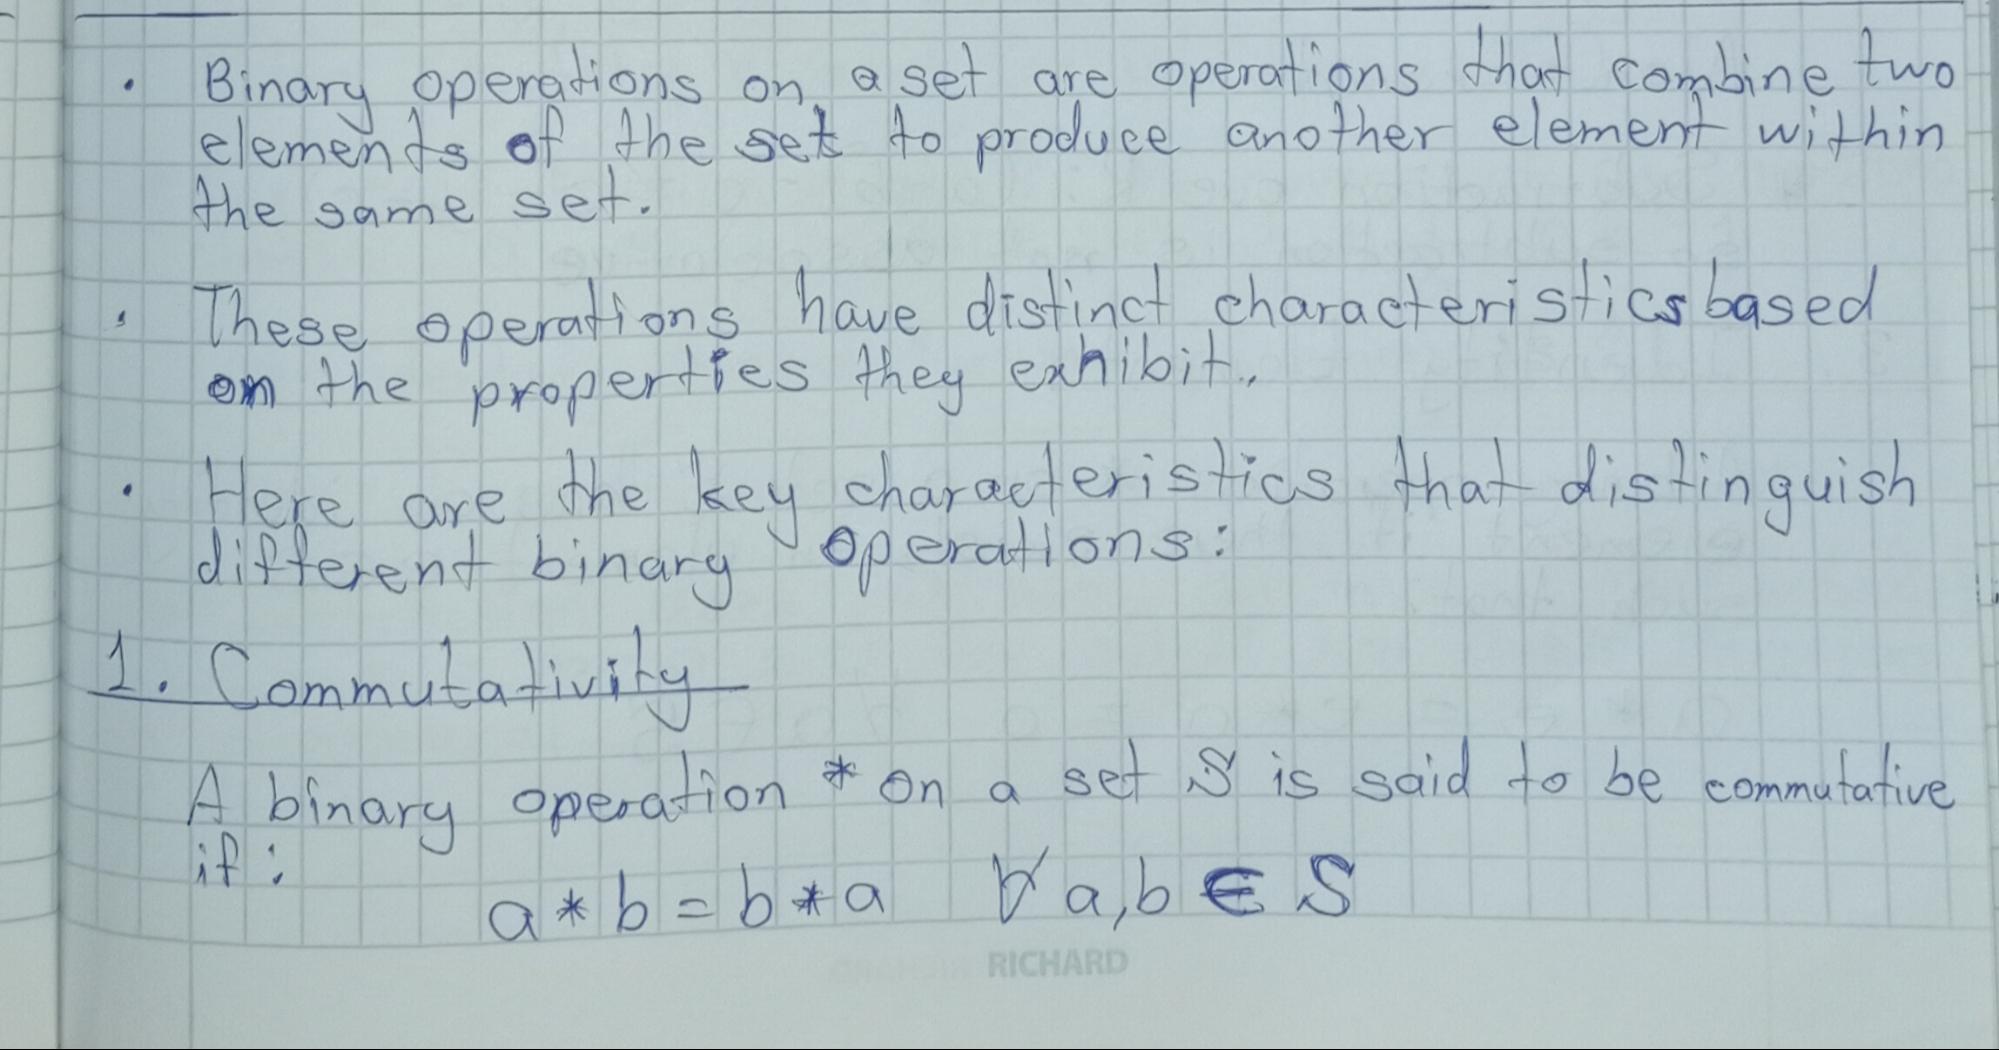 • Binary operations on a set are operations that combine two
elements of the set to produce another element within
the same set.
• These operations have distinct characteristics based
on the properties they exhibit.
• Here are the key characteristics that distinguish
different binary operations:
1. Commutativity
A binary operation * on a set S is said to be commutative
if:
a * b = b * a ∀ a, b ∈ S
RICHARD